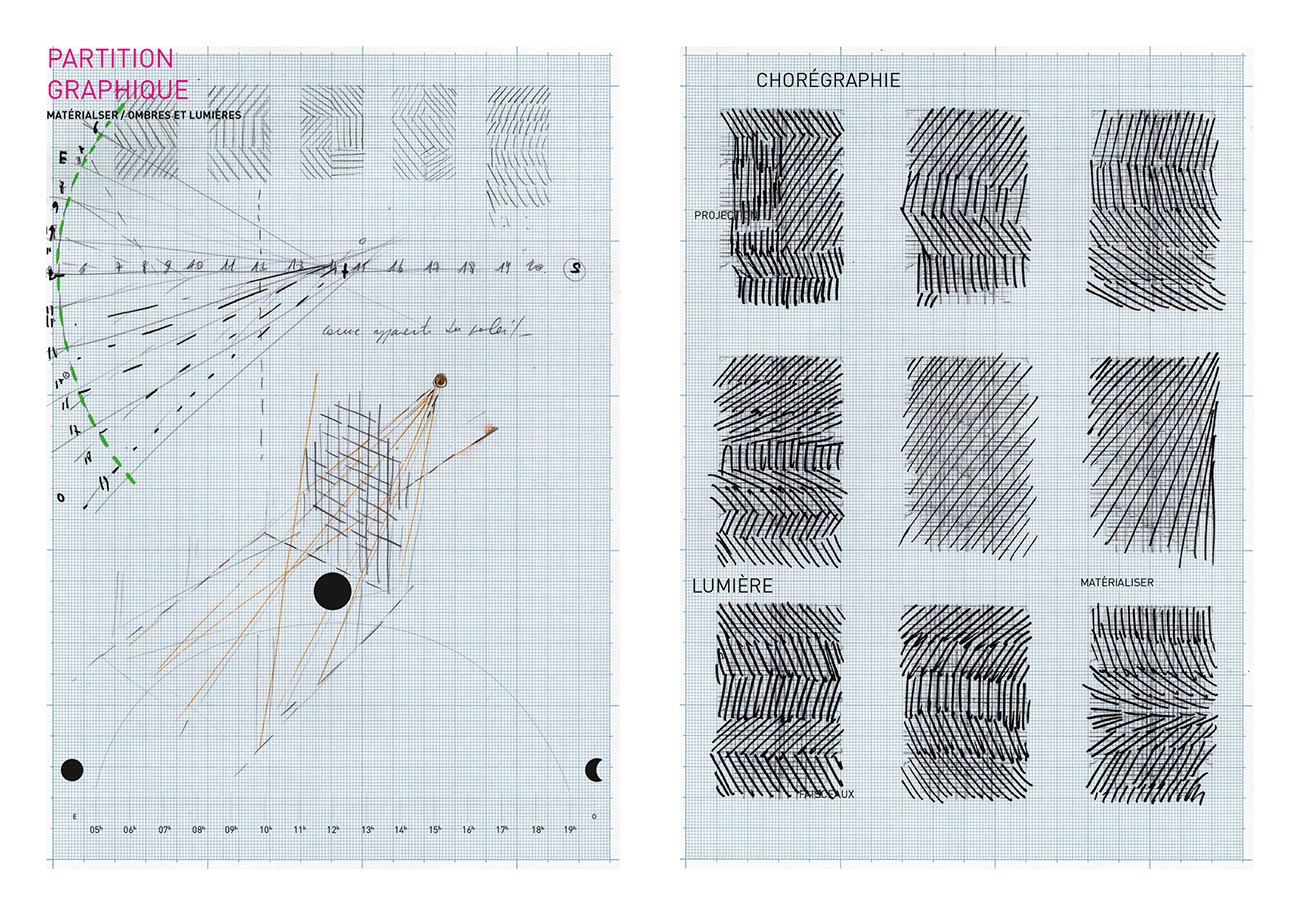 PARTITION
GRAPHIQUE
MATÉRIALSER / OMBRES ET LUMIÈRES
E
6 7 8 9 10 11 12 13 14 15 16 17 18 19 20 S
O
E
O
05h 06h 07h 08h 09h 10h 11h 12h 13h 14h 15h 16h 17h 18h 19h
CHORÉGRAPHIE
PROJECTION
LUMIÈRE
MATÉRIALISER
FAISCEAUX